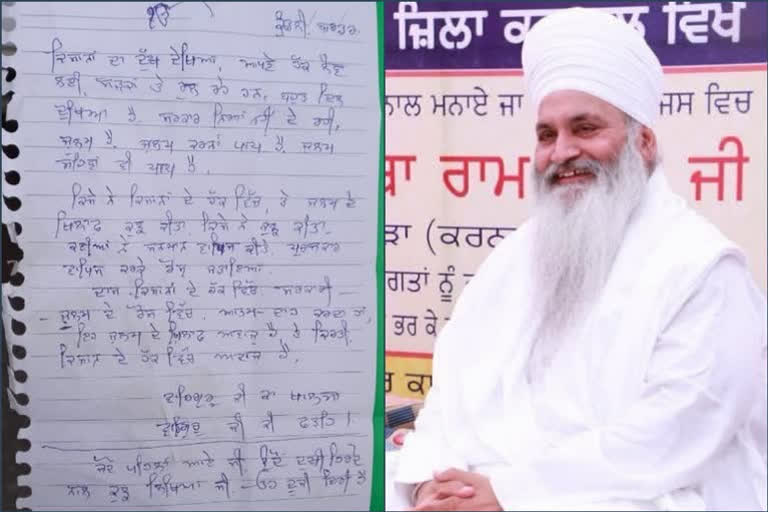 ੴ
ਕੁੰਡਲੀ ਬਾਰਡਰ
ਕਿਸਾਨਾਂ ਦਾ ਦੁੱਖ ਦੇਖਿਆ, ਆਪਣੇ ਹੱਕ ਲੈਣ
ਲਈ, ਸੜਕਾਂ ਤੇ ਰੁਲ ਰਹੇ ਹਨ, ਬਹੁਤ ਦਿਲ
ਦੁਖਿਆ ਹੈ. ਸਰਕਾਰ ਨਿਆਂ ਨਹੀਂ ਦੇ ਰਹੀ,
ਜ਼ੁਲਮ ਹੈ. ਜ਼ੁਲਮ ਕਰਨਾ ਪਾਪ ਹੈ. ਜ਼ੁਲਮ
ਸਹਿਣਾ ਵੀ ਪਾਪ ਹੈ.
ਕਿਸੇ ਨੇ ਕਿਸਾਨਾਂ ਦੇ ਹੱਕ ਵਿੱਚ, ਤੇ ਜੁਲਮ ਦੇ
ਖਿਲਾਫ ਕੁਝ ਕੀਤਾ. ਕਿਸੇ ਨੇ ਕੁਝ ਕੀਤਾ.
ਕਈਆਂ ਨੇ ਸਨਮਾਨ ਵਾਪਿਸ ਕੀਤੇ. ਪੁਰਸਕਾਰ
ਵਾਪਿਸ ਕਰਕੇ ਰੋਸ ਜਤਾਇਆ.
ਦਾਸ ਕਿਸਾਨਾਂ ਦੇ ਹੱਕ ਵਿੱਚ. ਸਰਕਾਰੀ
ਜ਼ੁਲਮ ਦੇ ਰੋਸ ਵਿੱਚ. ਆਤਮ-ਦਾਹ ਕਰਦਾ ਹਾਂ,
ਇਹ ਜ਼ੁਲਮ ਦੇ ਖਿਲਾਫ ਆਵਾਜ਼ ਹੈ ਤੇ ਕਿਰਤੀ
ਕਿਸਾਨ ਦੇ ਹੱਕ ਵਿੱਚ ਆਵਾਜ਼ ਹੈ.
ਵਾਹਿਗੁਰੂ ਜੀ ਕਾ ਖਾਲਸਾ
ਵਾਹਿਗੁਰੂ ਜੀ ਕੀ ਫਤਹਿ।
ਜਦੋਂ ਪਹਿਲਾਂ ਆਏ ਸੀ,
ਨਾਲ ਕੁਝ ਲਿਖਿਆ ਸੀ
ਜ਼ਿਲਾ ਵਿਖੇ
ਨਾਲ ਮਨਾਏ ਜਾ ਜਿਸ ਵਿਚ
ਬਾ ਰਾਮ ਜੀ
ੜਾ (ਕਰਨ
ਗਤਾਂ ਨੂੰ
ਭਰ ਕੇ
ਕਾ